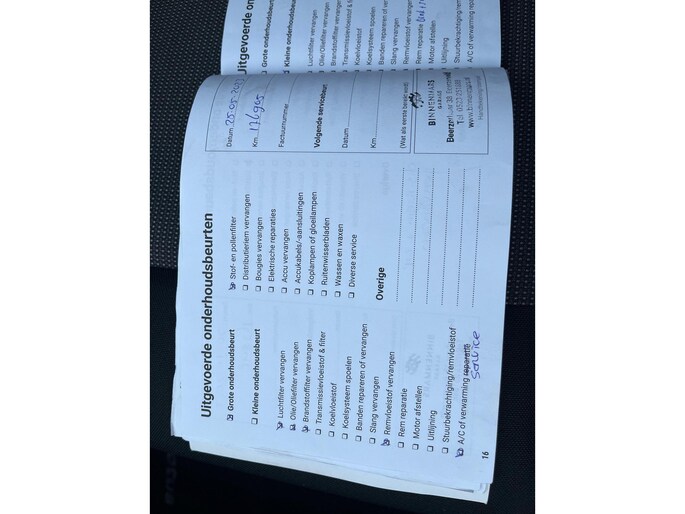 Uitgevoerde onderhoudsbeurten
Grote onderhoudsbeurt
Kleine onderhoudsbeurt
Luchtfilter vervangen
Olie/Oliefilter vervangen
Brandstoffilter vervangen
Transmissievloeistof & filter
Koelvloeistof
Koelsysteem spoelen
Banden repareren of vervangen
Slang vervangen
Remvloeistof vervangen
Rem reparatie
Motor afstellen
Uitlijning
Stuurbekrachtiging/remvloeistof
A/C of verwarming reparatie
service
16
Stof- en pollenfilter
Distributieriem vervangen
Bougies vervangen
Elektrische reparaties
Accu vervangen
Accukabels/-aansluitingen
Koplampen of gloeilampen
Ruitenwisserbladen
Wassen en waxen
Diverse service
Overige
Datum 25-05-202
Km 176905
Factuurnummer
Volgende servicebeurt
Datum
Km
(Wat als eerste bereikt wordt)
BINNENMARS
GARAGE
Uitgevoerde o
Grote onderhoudsbeurt
Kleine onderhoudsbeurt
Luchtfilter vervangen
Olie/Oliefilter vervangen
Brandstoffilter vervangen
Transmissievloeistof &
Koelvloeistof
Koelsysteem spoelen
Banden repareren of ve
Slang vervangen
Remvloeistof vervangen
Rem reparatie
Motor afstellen
Uitlijning
Stuurbekrachtiging/remv
A/C of verwarming repar